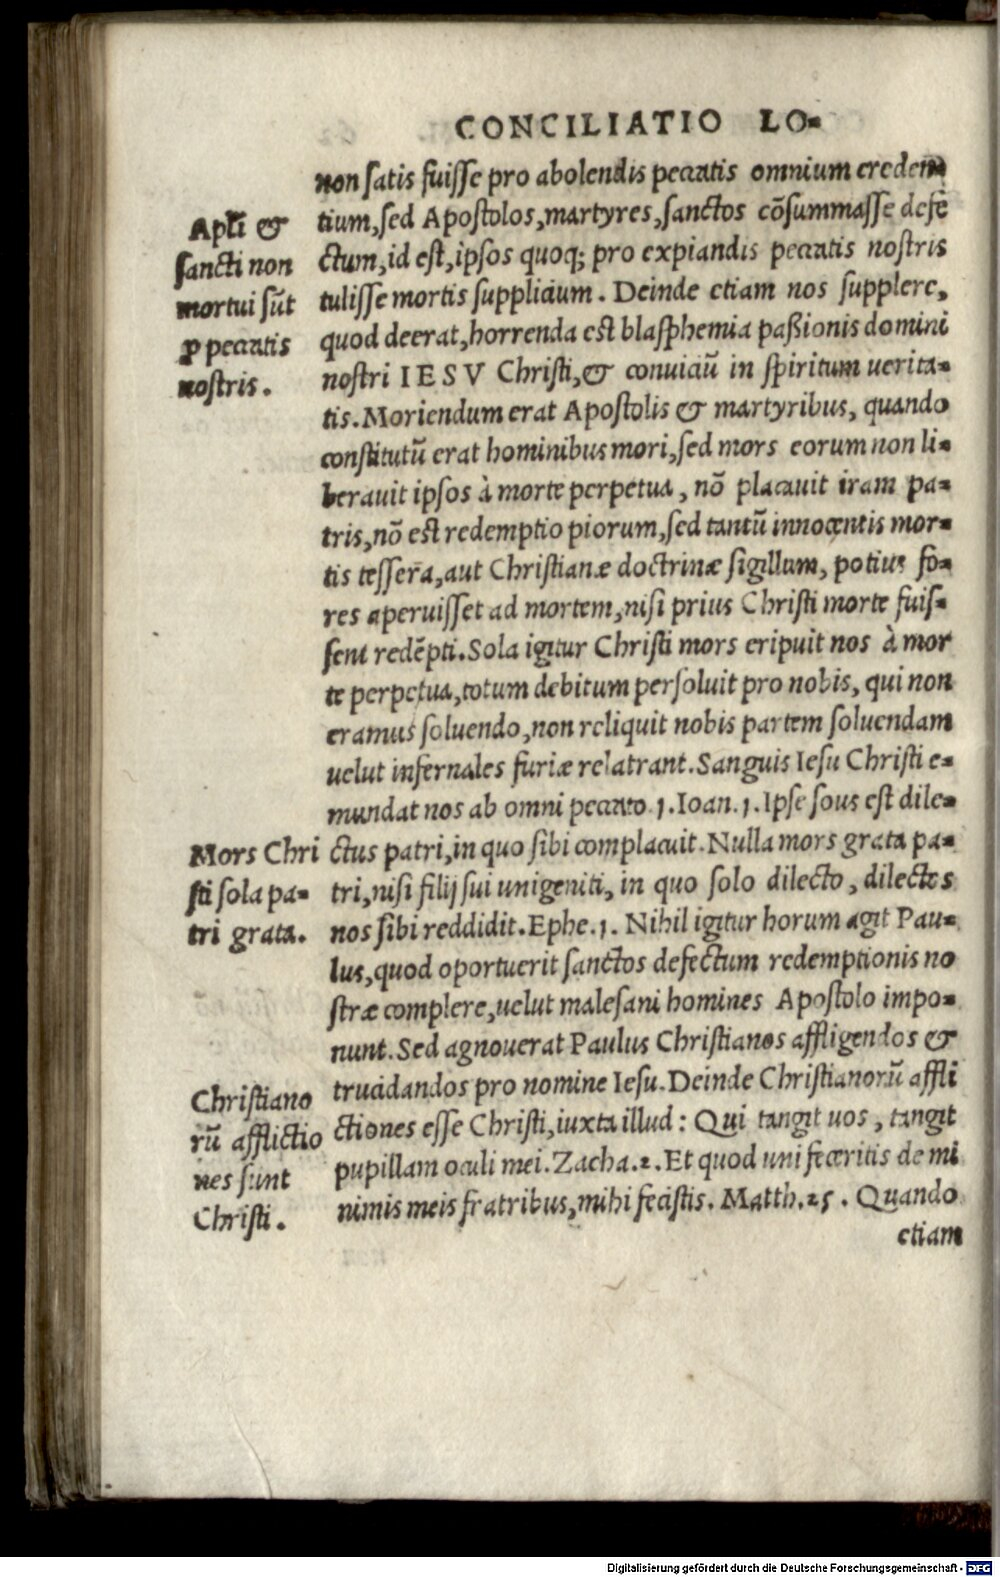 CONCILIATIO LO-
non satis fuisse pro abolendis peccatis omnium creden
tium, sed Apostolos, martyres, sanctos cõsummasse defe
ctum, id est, ipsos quoq; pro expiandis peccatis nostris
tulisse mortis supplicium. Deinde etiam nos supplere,
quod deerat, horrenda est blasphemia paßionis domini
nostri IESV Christi, & conuiciũ in spiritum uerita-
tis. Moriendum erat Apostolis & martyribus, quando
constitutũ erat hominibus mori, sed mors eorum non li-
berauit ipsos à morte perpetua, nõ placauit iram pa-
tris, nõ est redemptio piorum, sed tantũ innocentis mor-
tis tessera, aut Christianæ doctrinæ sigillum, potius fo-
res aperuisset ad mortem, nisi prius Christi morte fuis-
sent redẽpti. Sola igitur Christi mors eripuit nos à mor
te perpetua, totum debitum persoluit pro nobis, qui non
eramus soluendo, non reliquit nobis partem soluendam
uelut infernales furiæ relatrant. Sanguis Iesu Christi e-
mundat nos ab omni peccato 1. Ioan. 1. Ipse solus est dile-
ctus patri, in quo sibi complacuit. Nulla mors grata pa-
tri, nisi filij sui unigeniti, in quo solo dilecto, dilectos
nos sibi reddidit. Ephe. 1. Nihil igitur horum agit Pau-
lus, quod oportuerit sanctos defectum redemptionis no
stræ complere, uelut malesani homines Apostolo impo-
nunt. Sed agnouerat Paulus Christianos affligendos &
trucidandos pro nomine Iesu. Deinde Christianorũ affli
ctiones esse Christi, iuxta illud: Qui tangit uos, tangit
pupillam oculi mei. Zacha. 2. Et quod uni feceritis de mi
nimis meis fratribus, mihi fecistis. Matth. 25. Quando
etiam
Apl̃i &
sancti non
mortui sũt
ꝓ peccatis
nostris.
Mors Chri
sti sola pa-
tri grata.
Christiano
rũ afflictio
nes sunt
Christi.
Digitalisierung gefördert durch die Deutsche Forschungsgemeinschaft - DFG